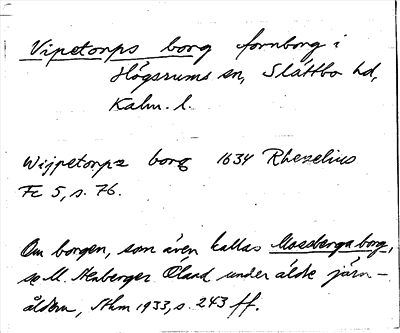 Vipetorps borg fornborg i
Högsrums sn, Slättbo hd,
Kalm. l.
Wijpetorpz borg 1634 Rhezelius
Fc 5, s. 76.
Om borgen, som även kallas Mossbergaborg,
se M. Stenberger Öland under äldre järn-
åldern, Sthm 1933, s. 243 ff.